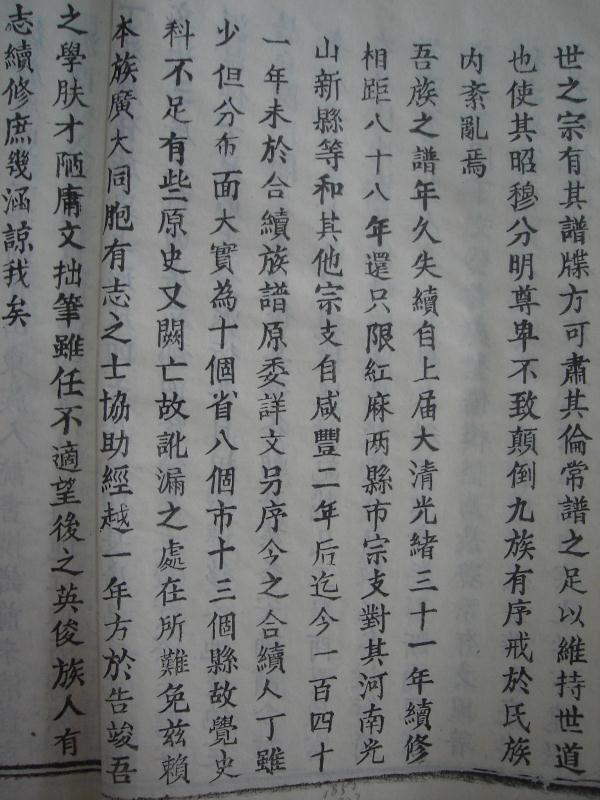 世之宗有其譜牒方可肅其倫常譜之足以維持世道
也使其昭穆分明尊卑不致顛倒九族有序戒於氏族
內紊亂焉
吾族之譜年久失續自上届大清光緒三十一年續修
相距八十八年還只限紅麻两縣市宗支對其河南光
山新縣等和其他宗支自咸豐二年后迄今一百四十
一年未於合續族譜原委詳文另序今之合續人丁雖
少但分布面大實為十個省八個市十三個縣故覺史
科不足有些原史又闕亡故訛漏之處在所難免兹賴
本族廣大同胞有志之士協助經越一年方於告竣吾
之學肤才陋庸文拙筆雖任不適望後之英俊族人有
志續修庶幾涵諒我矣